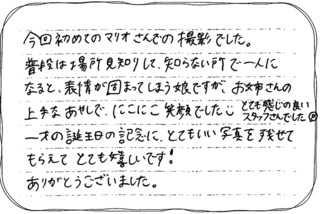 今回初めてのマリオさんでの撮影でした。
普段は場所見知りして、知らない所で一人に
なると、表情が固まってしまう娘ですが、お姉さんの
上手なあやしで、にこにこ笑顔でした
とても感じの良い
スタッフさんでした
一才の誕生日の記念に、とてもいい写真を残せて
もらえてとても嬉しいです!
ありがとうございました。